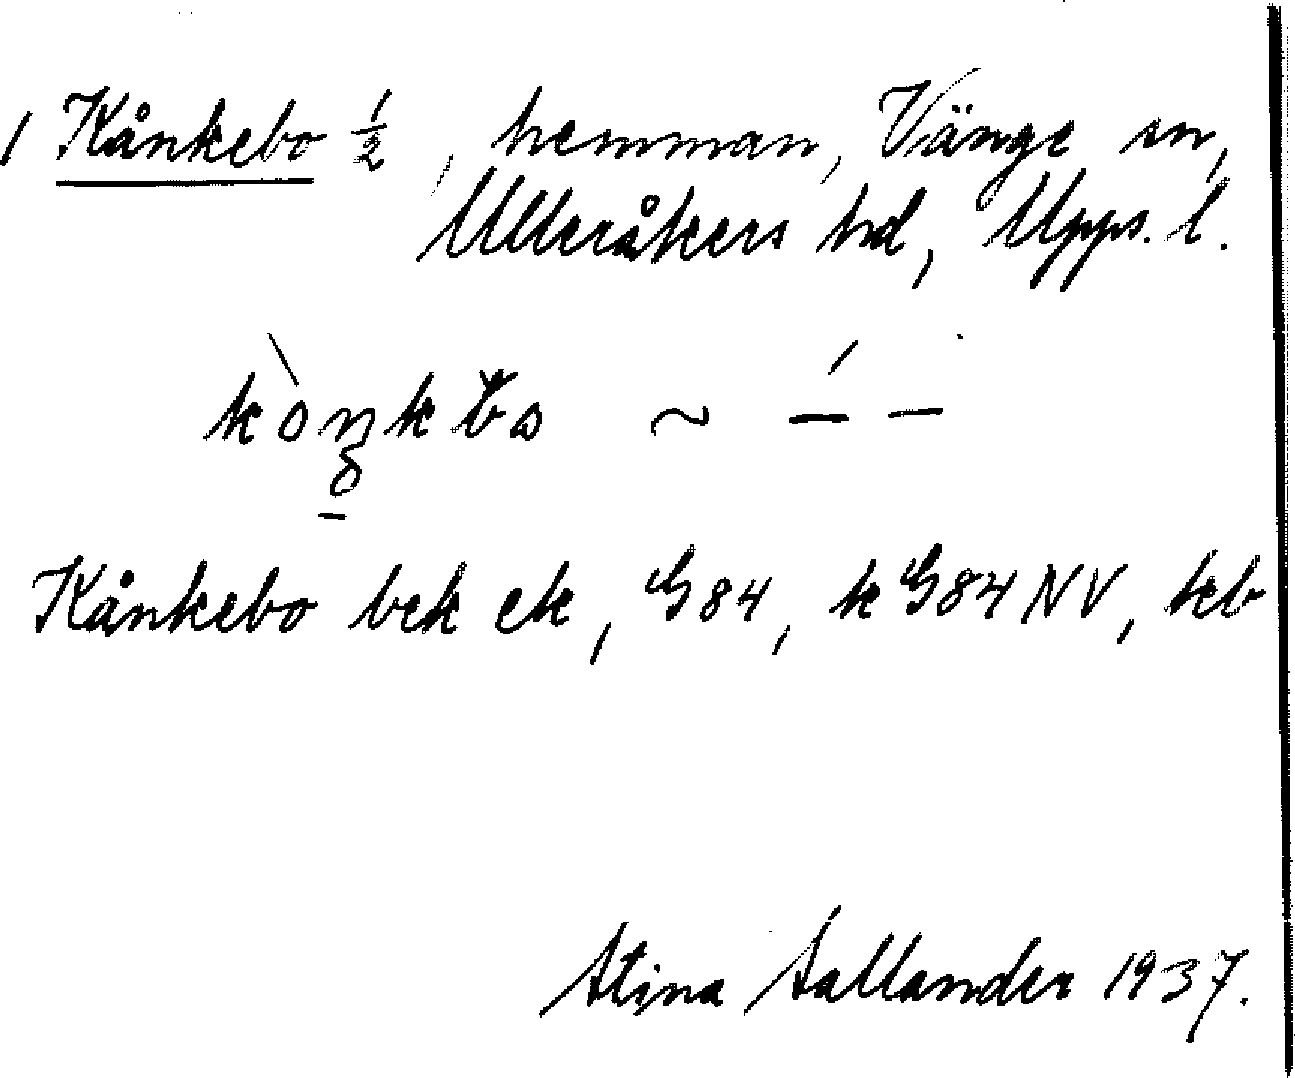 1 Kånkebo ½, hemman, Vänge sn,
Ulleråkers hd, Upps. l.
~ ´— —
Kånkebo bek ek, G84, k G84 NV, hb
Stina Sallander 1937.